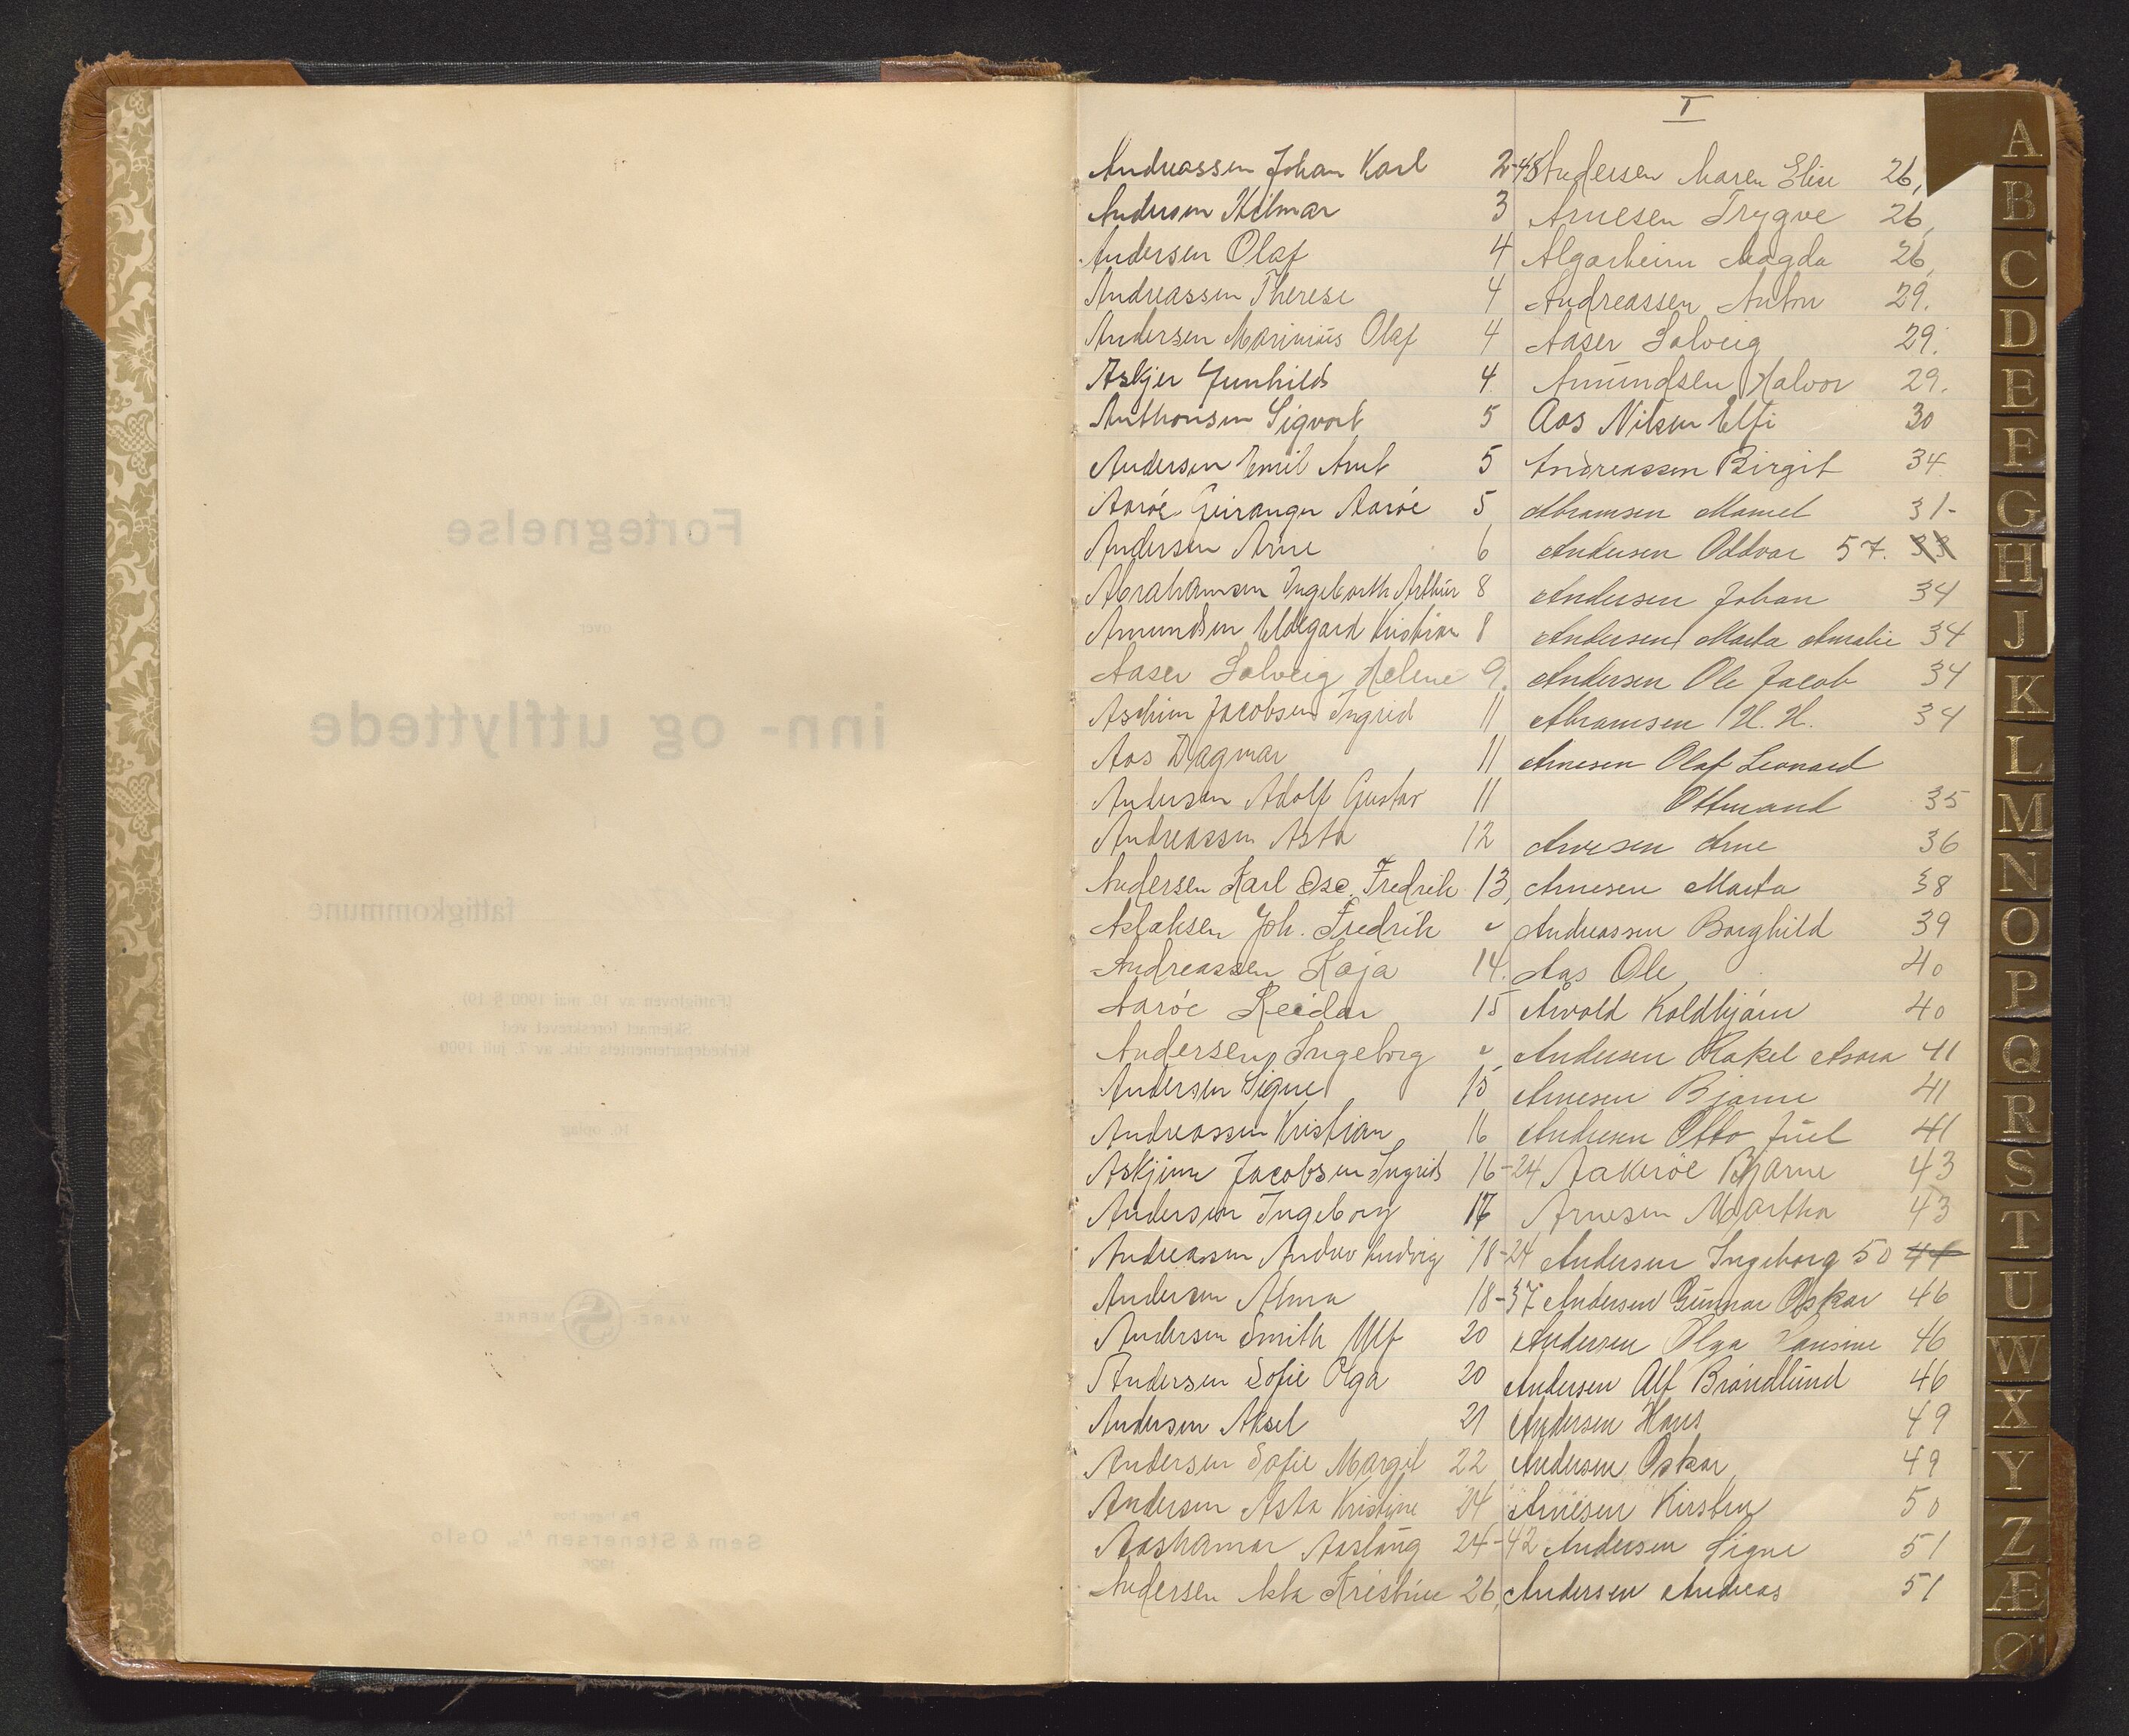 Fortegnelse
over
inn- og utflyttede
fattigkommune
(Fattigloven av 19. mai 1900 § 19)
Skjemaet foreskrevet ved
Kirkedepartementets cirk. av 7. juli 1900
10. oplag
VARE MERKE
Sem & Stenersen A/s, Oslo
1926
I
Andreassen Johan Karl 2-48
Andersen Hilmar 3
Andersen Olaf 4
Andreassen Therese 4
Andersen Marinius Olaf 4
Askjer Gunhild 4
Anthonsen Sigvart 5
Andersen Emil Arnt 5
Aarøe Geiranger Aarøe 5
Andersen Arne 6
Abrahamsen Ingeborth Arthur 8
Amundsen Hildegard Kristian 8
Aaser Solveig Helene 9.
Aschim Jacobsen Ingrid 11
Aas Dagmar 11
Andersen Adolf Gustav 11
Andreassen Asta 12
Andersen Karl Osc. Fredrik 13,
Aslaksen Joh. Fredrik "
Andreassen Kaja 14.
Aarøe Reidar 15
Andersen, Ingeborg "
Andersen Signe 15
Andreassen Kristian 16
Askjim Jacobsen Ingrid 16-24
Andersen Ingeborg 17
Andreassen Andor Ludvig 18-24
Andersen Alma 18-37
Andersen Smith Ulf 20
Andersen Sofie Olga 20
Andersen Aksel 21
Andersen Sofie Margit 22
Andersen Asta Kristine 24
Aashamar Aaslaug 24-42
Andersen Asta Kristine 26,
Andersen Maren Elise 26,
Arnesen Trygve 26,
Algarheim Magda 26,
Andreassen Anton 29.
Aaser Solveig 29.
Amundsen Halvor 29.
Aas Nilsen Elfi 30
Andreassen Birgit 34
Abramsen Mamel 31-
Andersen Oddvar 57. 33
Andersen Johan 34
Andersen Marta Amalie 34
Andersen Ole Jacob 34
Abramsen H. H. 34
Arnesen Olaf Leonard
Ottmand 35
Arnesen Arne 36
Arnesen Marta 38
Andreassen Borghild 39
Aas Ole 40
Arvold Koldbjørn 40
Andersen Rakel Asora 41
Arnesen Bjarne 41
Andersen Otto Juel 41
Aakerøe Bjarne 43
Arnesen Martha 43
Andersen Ingeborg 50 44
Andersen Gunnar Oskar 46
Andersen Olga Hansine 46
Andersen Alf Brøndlund 46
Andersen Hans 49
Andersen Oskar 49
Arnesen Kirsten 50
Andersen Signe 51
Andersen Andreas 51
A
B
C
D
E
F
G
H
J
K
L
M
N
O
P
Q
R
S
T
U
W
X
Y
Z
Æ
Ø